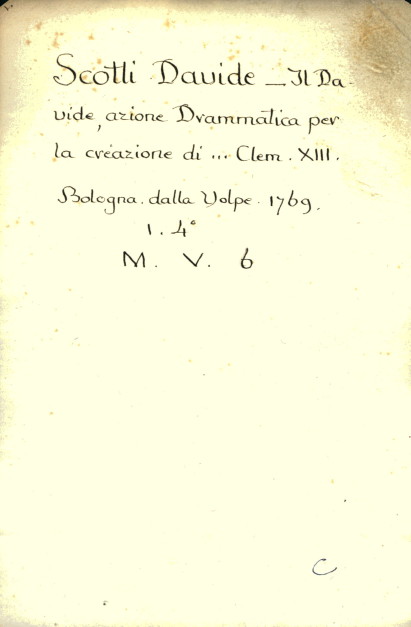 Scotti Davide _ Il Da-
vide, azione Drammatica per
la creazione di ... Clem. XIII.
Bologna. dalla Volpe. 1769.
1. 4°
M. V. 6
C